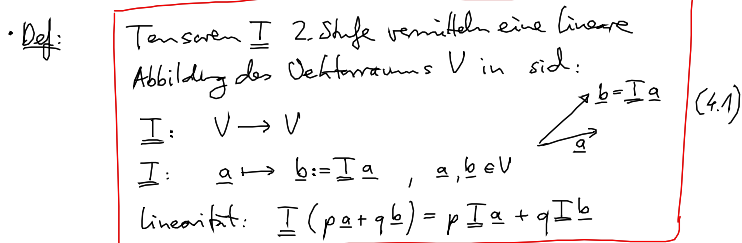 • Def: Tensoren T 2. Stufe vermitteln eine lineare
Abbildung des Vektorraums V in sich:
b = T a
(4.1)
T: V → V
a
T: a ↦ b := T a , a, b ∈ V
Linearität: T (p a + q b) = p T a + q T b